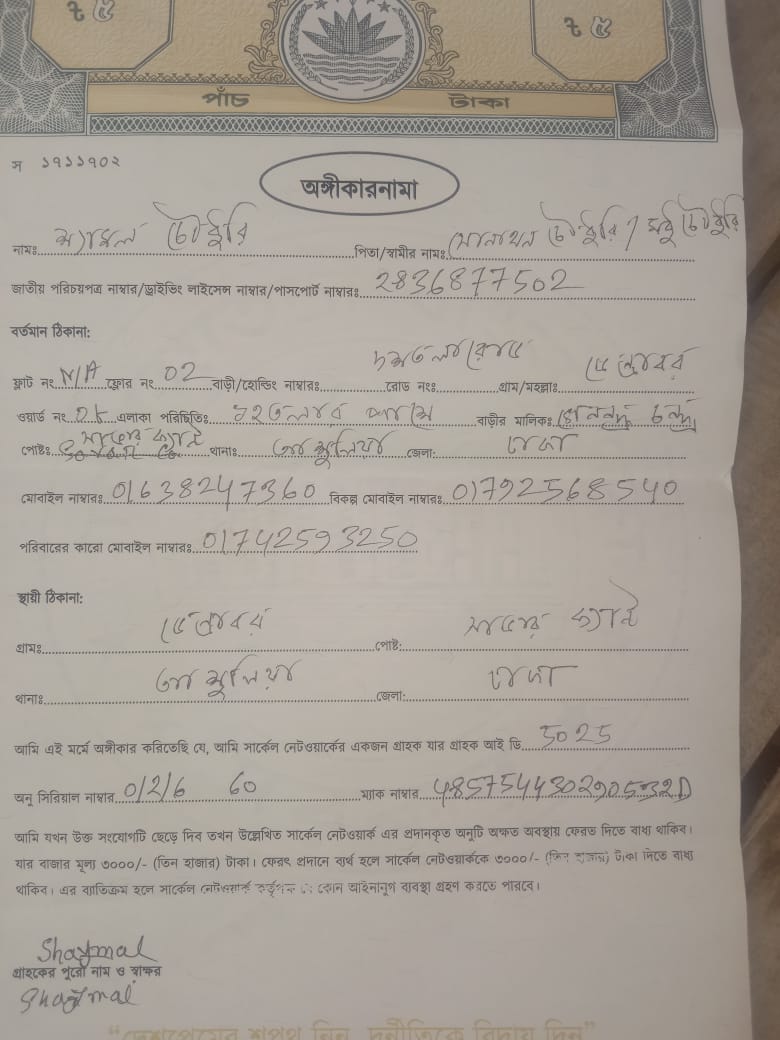 ট ৫ ট ৫
পাঁচ টাকা
স ১৭১১৭০২
অঙ্গীকারনামা
নামঃ শ্যামল চৌধুরি পিতা/স্বামীর নামঃ চৌধুরি / মধু চৌধুরি
জাতীয় পরিচয়পত্র নাম্বার/ড্রাইভিং লাইসেন্স নাম্বার/পাসপোর্ট নাম্বারঃ 2836877502
বর্তমান ঠিকানা:
ফ্লাট নং N/A ফ্লোর নং 02 বাড়ী/হোল্ডিং নাম্বারঃ রোড নংঃ গ্রাম/মহল্লাঃ
ওয়ার্ড নং এলাকা পরিচিতিঃ বাড়ীর মালিকঃ
পোষ্টঃ থানাঃ আশুলিয়া জেলা: ঢাকা
মোবাইল নাম্বারঃ 01638247360 বিকল্প মোবাইল নাম্বারঃ 01792568540
পরিবারের কারো মোবাইল নাম্বারঃ 01742593250
স্থায়ী ঠিকানা:
গ্রামঃ পোষ্ট:
থানাঃ আশুলিয়া জেলা: ঢাকা
আমি এই মর্মে অঙ্গীকার করিতেছি যে, আমি সার্কেল নেটওয়ার্কের একজন গ্রাহক যার গ্রাহক আই ডি 5025
অনু সিরিয়াল নাম্বার 0/2/6 60 ম্যাক নাম্বার
আমি যখন উক্ত সংযোগটি ছেড়ে দিব তখন উল্লেখিত সার্কেল নেটওয়ার্ক এর প্রদানকৃত অনুটি অক্ষত অবস্থায় ফেরত দিতে বাধ্য থাকিব।
যার বাজার মূল্য ৩০০০/- (তিন হাজার) টাকা। ফেরৎ প্রদানে ব্যর্থ হলে সার্কেল নেটওয়ার্ককে ৩০০০/- (তিন হাজার) টাকা দিতে বাধ্য
থাকিব। এর ব্যতিক্রম হলে সার্কেল নেটওয়ার্ক কর্তৃপক্ষ কোন আইনানুগ ব্যবস্থা গ্রহণ করতে পারবে।
Shaymal
গ্রাহকের পুরো নাম ও স্বাক্ষর
Shaymal
“দেশপ্রেমের শপথ নিন, দুর্নীতিকে বিদায় দিন”